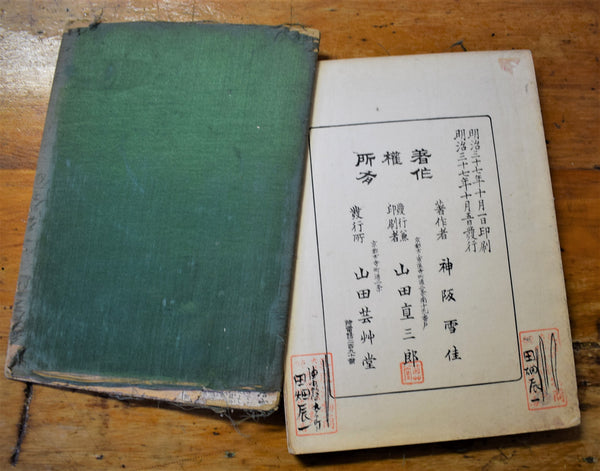 明治三十七年十月一日印刷
明治三十七年十月五日發行
著作權所有
著作者 神阪雪佳
發行兼印刷者 山田直三郎
京都市寺町通二条
發行所 山田芸艸堂
田畑辰一
田畑辰一